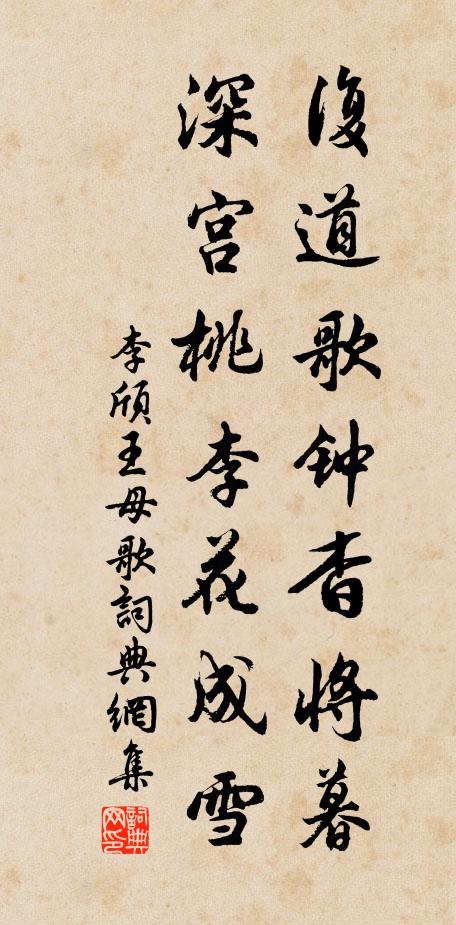 復道歌钟杳将暮
深宫桃李花成雪
李頎王母歌詞典網集
詞典網印